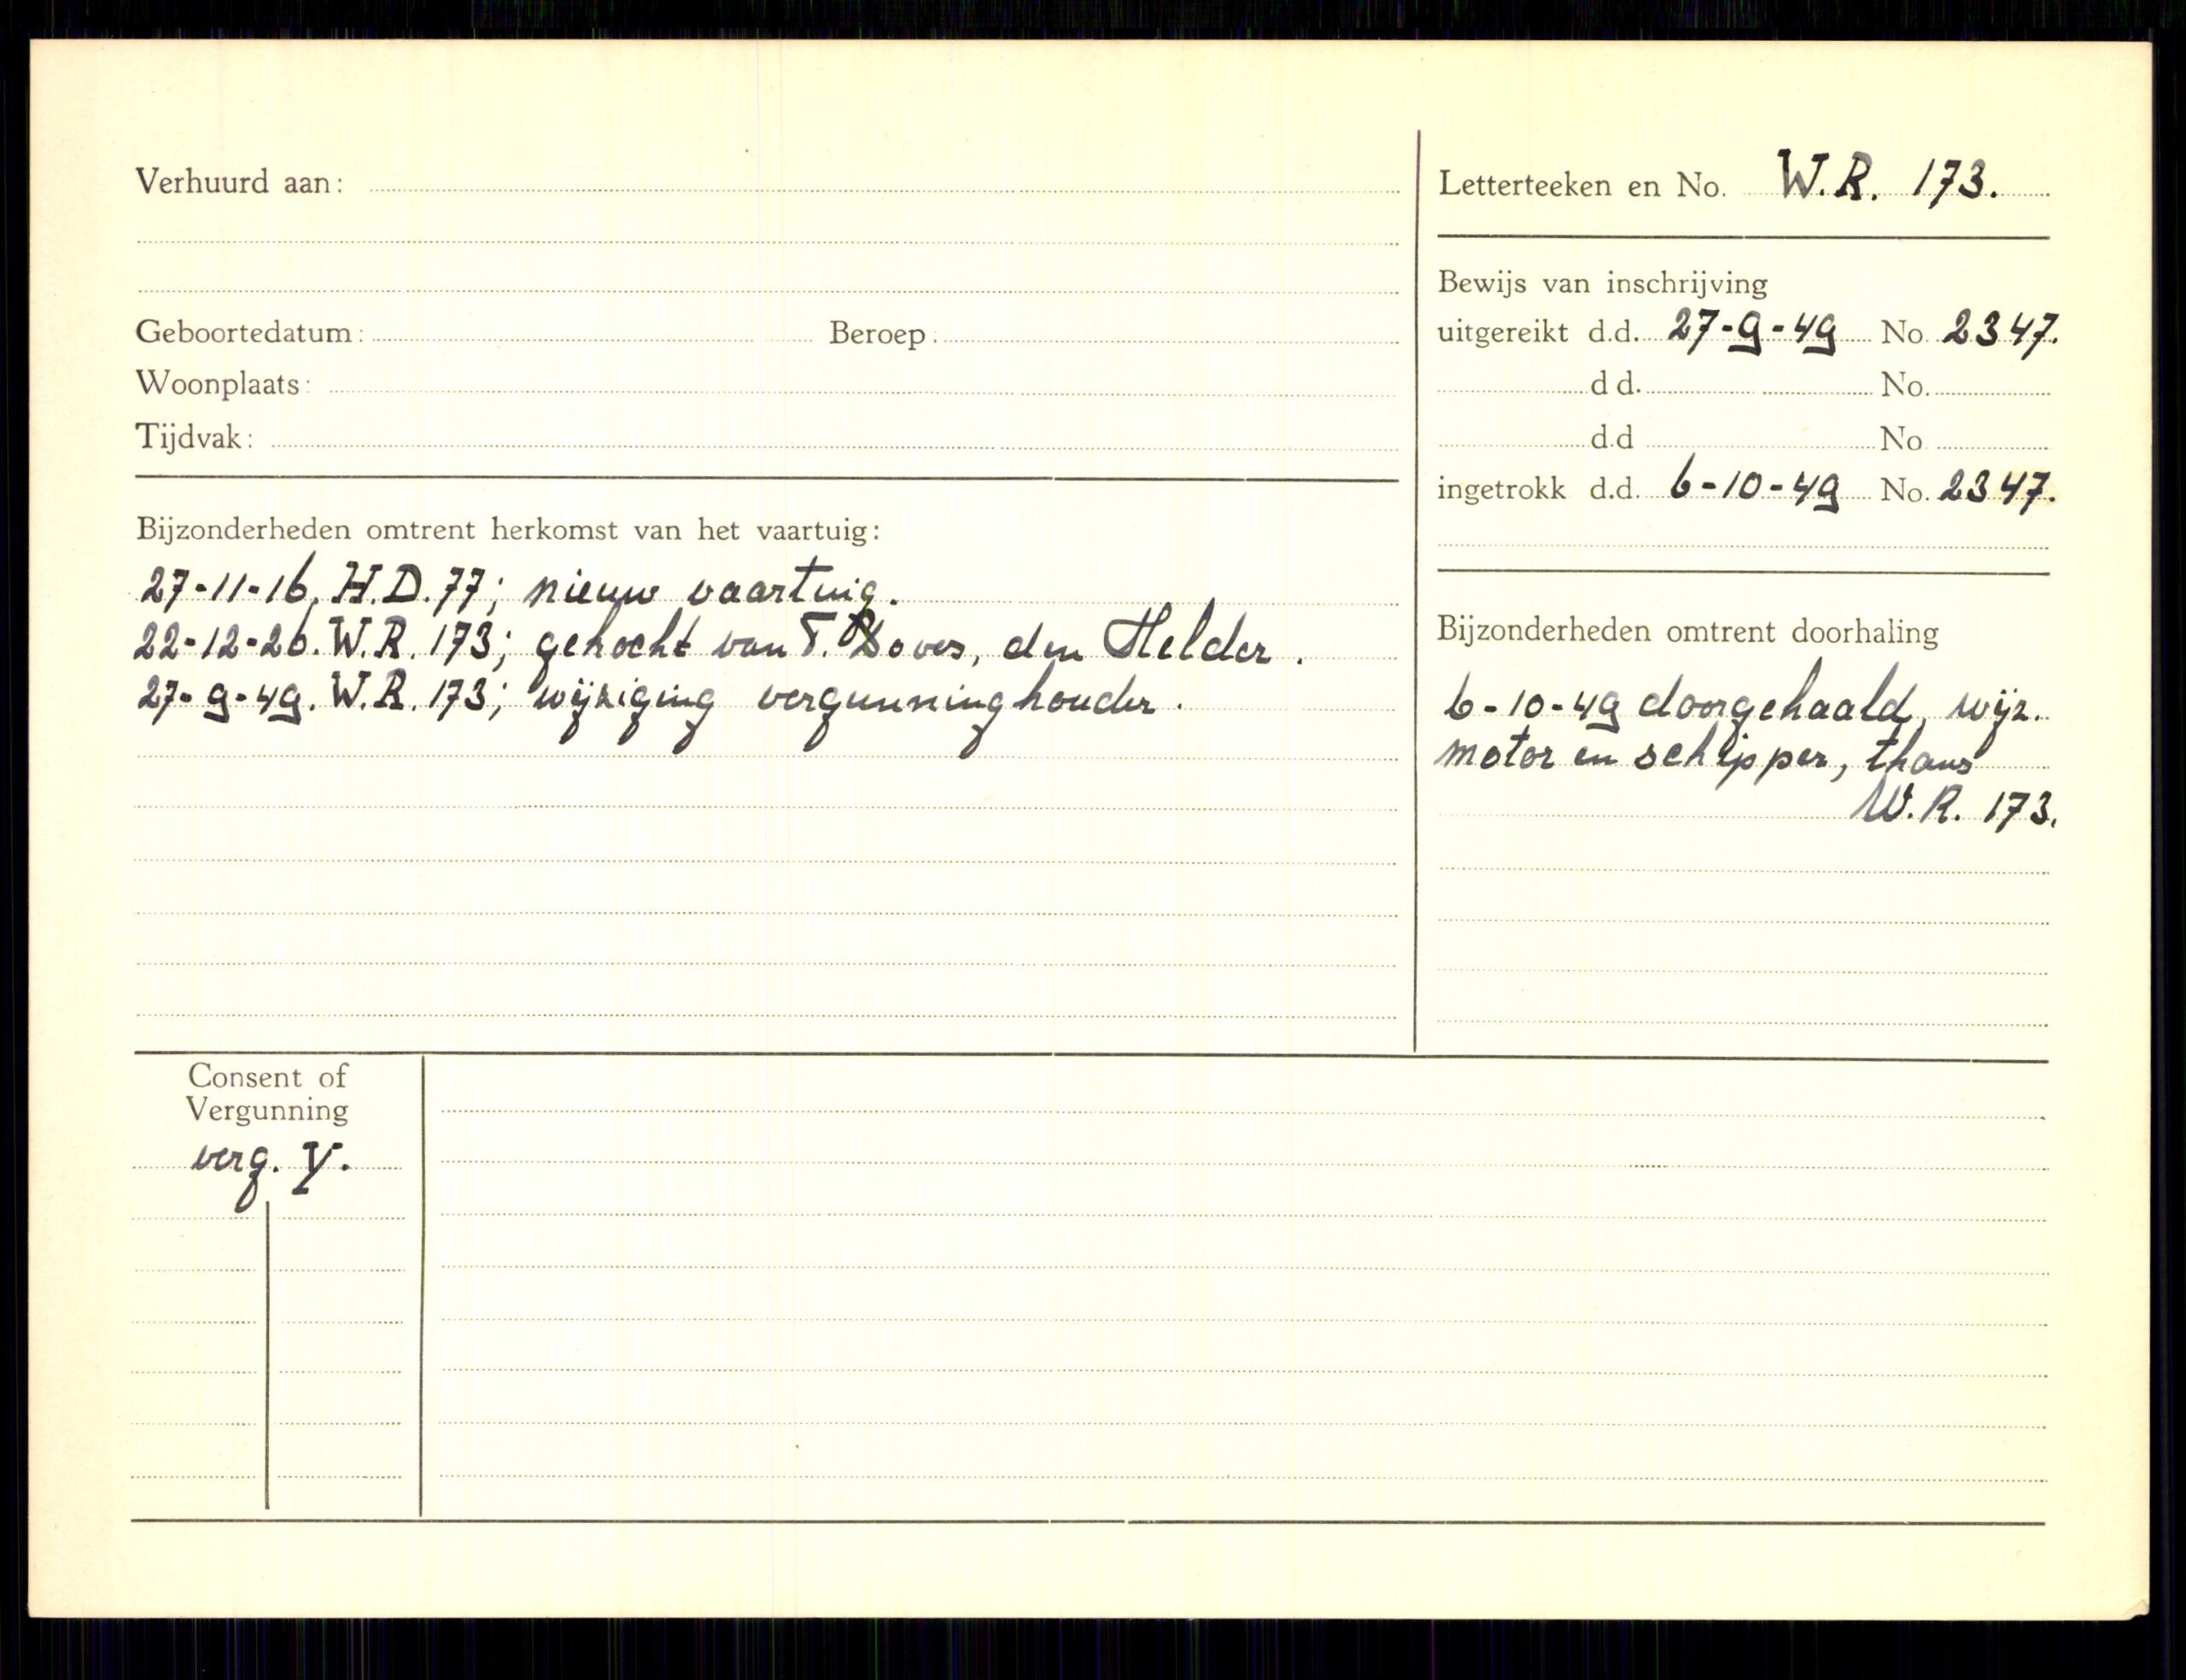 Verhuurd aan:
Geboortedatum: Beroep:
Woonplaats:
Tijdvak:
Bijzonderheden omtrent herkomst van het vaartuig:
27-11-16, H.D. 77; nieuw vaartuig.
22-12-26. W.R. 173; gekocht van T. den Helder.
27-9-49. W.R. 173; wijziging vergunninghouder.
Letterteeken en No. W.R. 173.
Bewijs van inschrijving
uitgereikt d.d. 27-9-49 No. 2347.
d d. No.
d.d No
ingetrokk d.d. 6-10-49 No. 2347.
Bijzonderheden omtrent doorhaling
6-10-49 doorgehaald, wijz.
motor en schipper, thans
W.R. 173.
Consent of
Vergunning
verg. V.